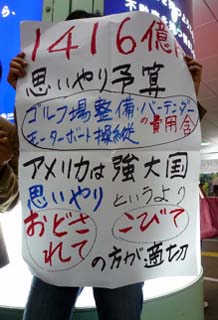 1416億円
思いやり予算
ゴルフ場整備・バーテンダー
モーターボート操縦の費用含
アメリカは強大国
思いやりというより
おどされて
こびて
の方が適切